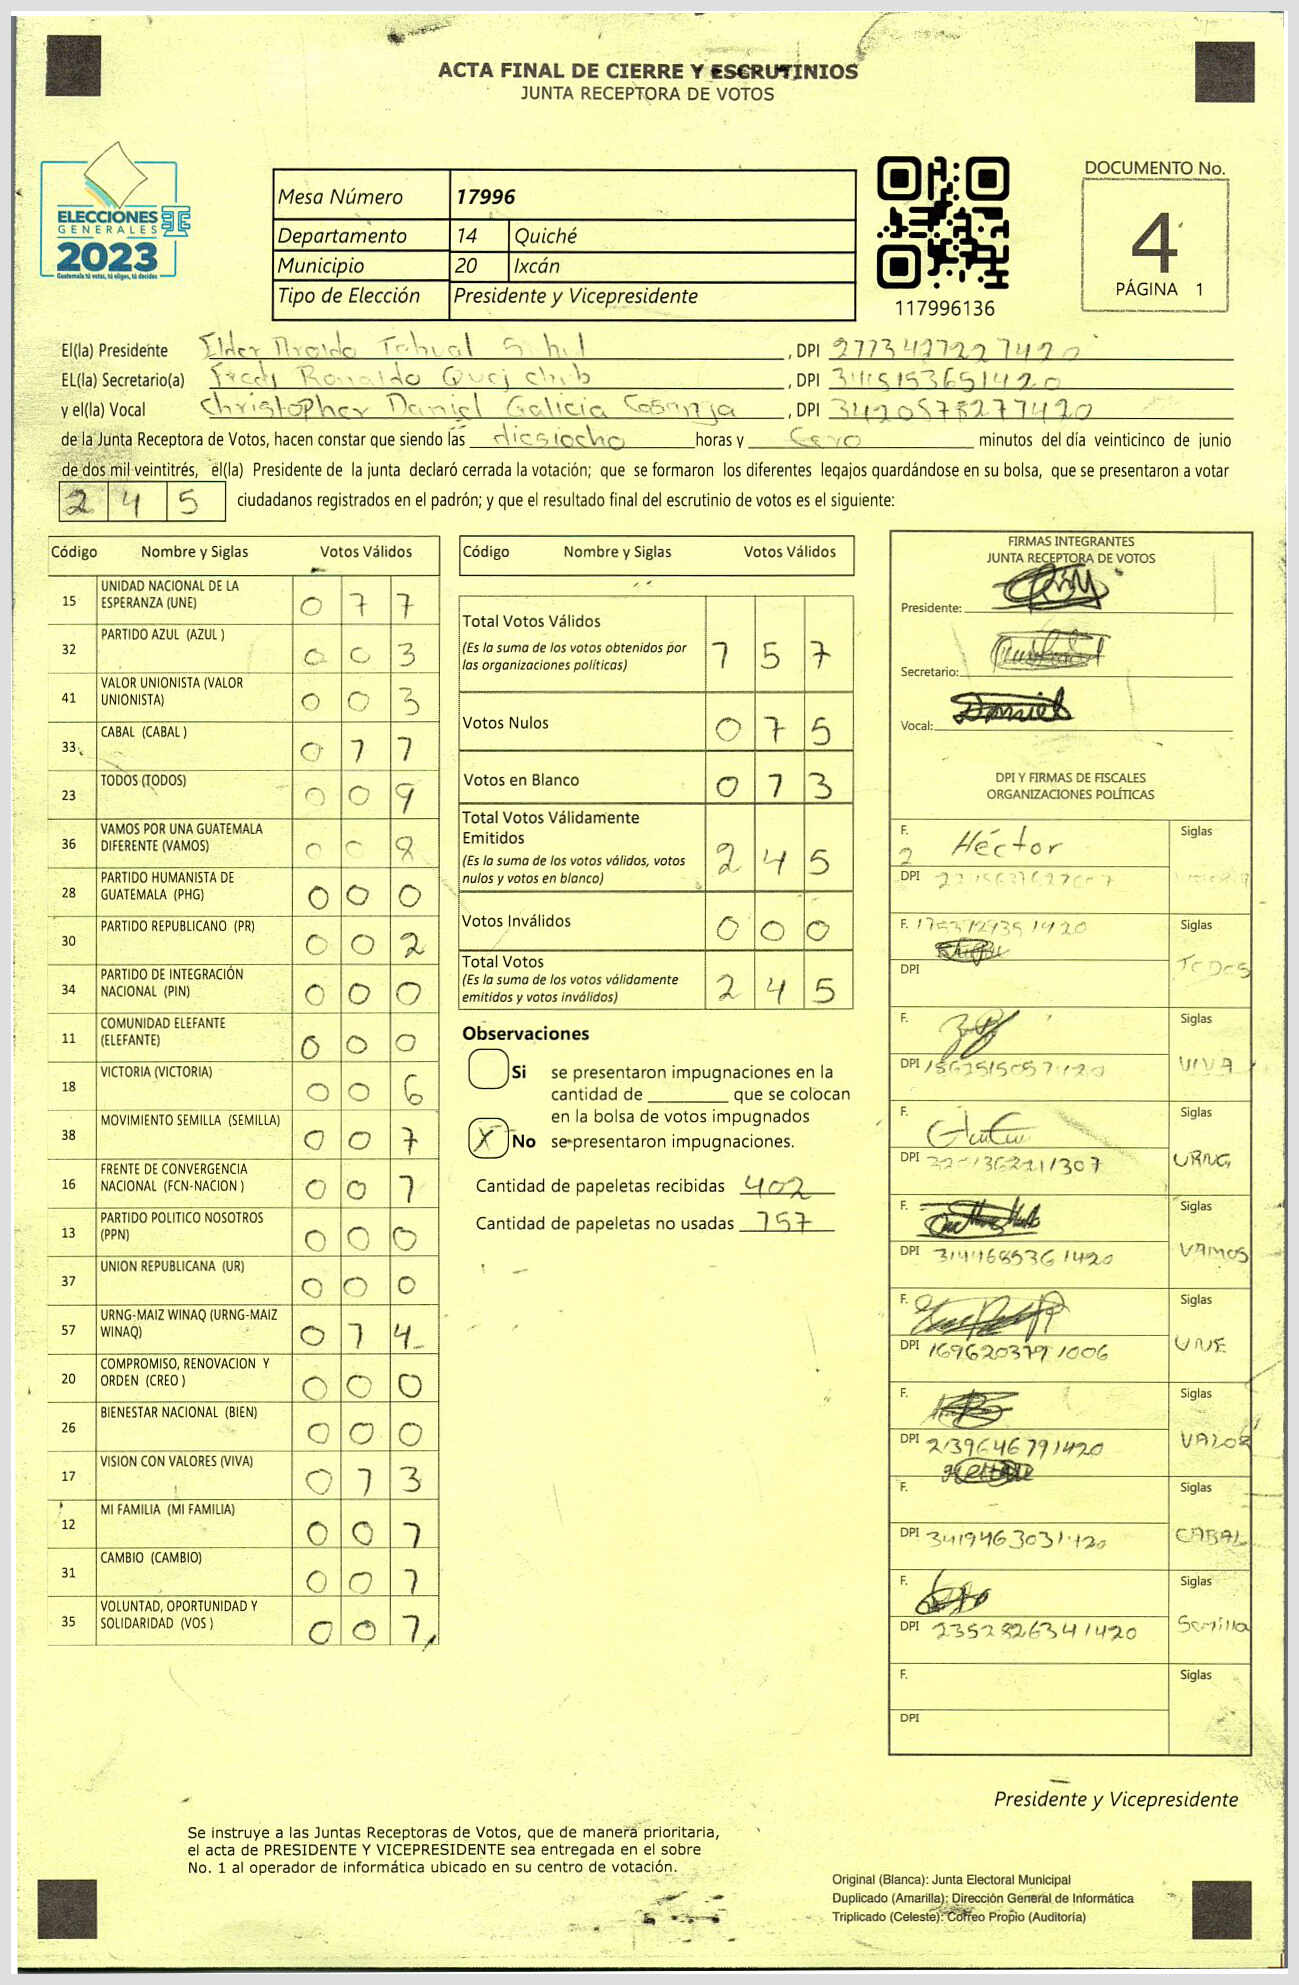 ACTA FINAL DE CIERRE Y ESCRUTINIOS
JUNTA RECEPTORA DE VOTOS
ELECCIONES
GENERALES
2023
Guatemala tú votas, tú eliges, tú decides
Mesa Número 17996
Departamento 14 Quiché
Municipio 20 Ixcán
Tipo de Elección Presidente y Vicepresidente
117996136
DOCUMENTO No.
4
PÁGINA 1
El(la) Presidente Elder , DPI
EL(la) Secretario(a) Fredy Ronaldo Quej Chub , DPI 3415153651420
y el(la) Vocal Christopher Daniel Galicia , DPI
de la Junta Receptora de Votos, hacen constar que siendo las diesiocho horas y Cero minutos del día veinticinco de junio
de dos mil veintitrés, el(la) Presidente de la junta declaró cerrada la votación; que se formaron los diferentes legajos guardándose en su bolsa, que se presentaron a votar
2 4 5 ciudadanos registrados en el padrón; y que el resultado final del escrutinio de votos es el siguiente:
Código Nombre y Siglas Votos Válidos
15 UNIDAD NACIONAL DE LA ESPERANZA (UNE) 0 7 7
32 PARTIDO AZUL (AZUL ) 0 0 3
41 VALOR UNIONISTA (VALOR UNIONISTA) 0 0 3
33 CABAL (CABAL ) 0 1 1
23 TODOS (TODOS) 0 0 9
36 VAMOS POR UNA GUATEMALA DIFERENTE (VAMOS) 0 0 8
28 PARTIDO HUMANISTA DE GUATEMALA (PHG) 0 0 0
30 PARTIDO REPUBLICANO (PR) 0 0 2
34 PARTIDO DE INTEGRACIÓN NACIONAL (PIN) 0 0 0
11 COMUNIDAD ELEFANTE (ELEFANTE) 0 0 0
18 VICTORIA (VICTORIA) 0 0 6
38 MOVIMIENTO SEMILLA (SEMILLA) 0 0 7
16 FRENTE DE CONVERGENCIA NACIONAL (FCN-NACION ) 0 0 1
13 PARTIDO POLITICO NOSOTROS (PPN) 0 0 0
37 UNION REPUBLICANA (UR) 0 0 0
57 URNG-MAIZ WINAQ (URNG-MAIZ WINAQ) 0 1 4
20 COMPROMISO, RENOVACION Y ORDEN (CREO ) 0 0 0
26 BIENESTAR NACIONAL (BIEN) 0 0 0
17 VISION CON VALORES (VIVA) 0 1 3
12 MI FAMILIA (MI FAMILIA) 0 0 1
31 CAMBIO (CAMBIO) 0 0 1
35 VOLUNTAD, OPORTUNIDAD Y SOLIDARIDAD (VOS ) 0 0 1
Código Nombre y Siglas Votos Válidos
Total Votos Válidos 1 5 7
(Es la suma de los votos obtenidos por
las organizaciones políticas)
Votos Nulos 0 7 5
Votos en Blanco 0 1 3
Total Votos Válidamente
Emitidos 2 4 5
(Es la suma de los votos válidos, votos
nulos y votos en blanco)
Votos Inválidos 0 0 0
Total Votos 2 4 5
(Es la suma de los votos válidamente
emitidos y votos inválidos)
Observaciones
Si se presentaron impugnaciones en la
cantidad de ________ que se colocan
en la bolsa de votos impugnados
X No se presentaron impugnaciones.
Cantidad de papeletas recibidas 402
Cantidad de papeletas no usadas 157
FIRMAS INTEGRANTES
JUNTA RECEPTORA DE VOTOS
Presidente:
Secretario:
Vocal: Daniel
DPI Y FIRMAS DE FISCALES
ORGANIZACIONES POLÍTICAS
F. Héctor Siglas
DPI
F. Siglas TODOS
DPI
F. Siglas VIVA
DPI
F. Siglas URNG
DPI
F. Siglas VAMOS
DPI 3144685361420
F. Siglas UNE
DPI 1696203791006
F. Siglas VALOR
DPI 2139646791420
F. Siglas CABAL
DPI 3419463031420
F. Siglas Semilla
DPI 2352826341420
F. Siglas
DPI
Presidente y Vicepresidente
Se instruye a las Juntas Receptoras de Votos, que de manera prioritaria,
el acta de PRESIDENTE Y VICEPRESIDENTE sea entregada en el sobre
No. 1 al operador de informática ubicado en su centro de votación.
Original (Blanca): Junta Electoral Municipal
Duplicado (Amarilla): Dirección General de Informática
Triplicado (Celeste): Correo Propio (Auditoría)